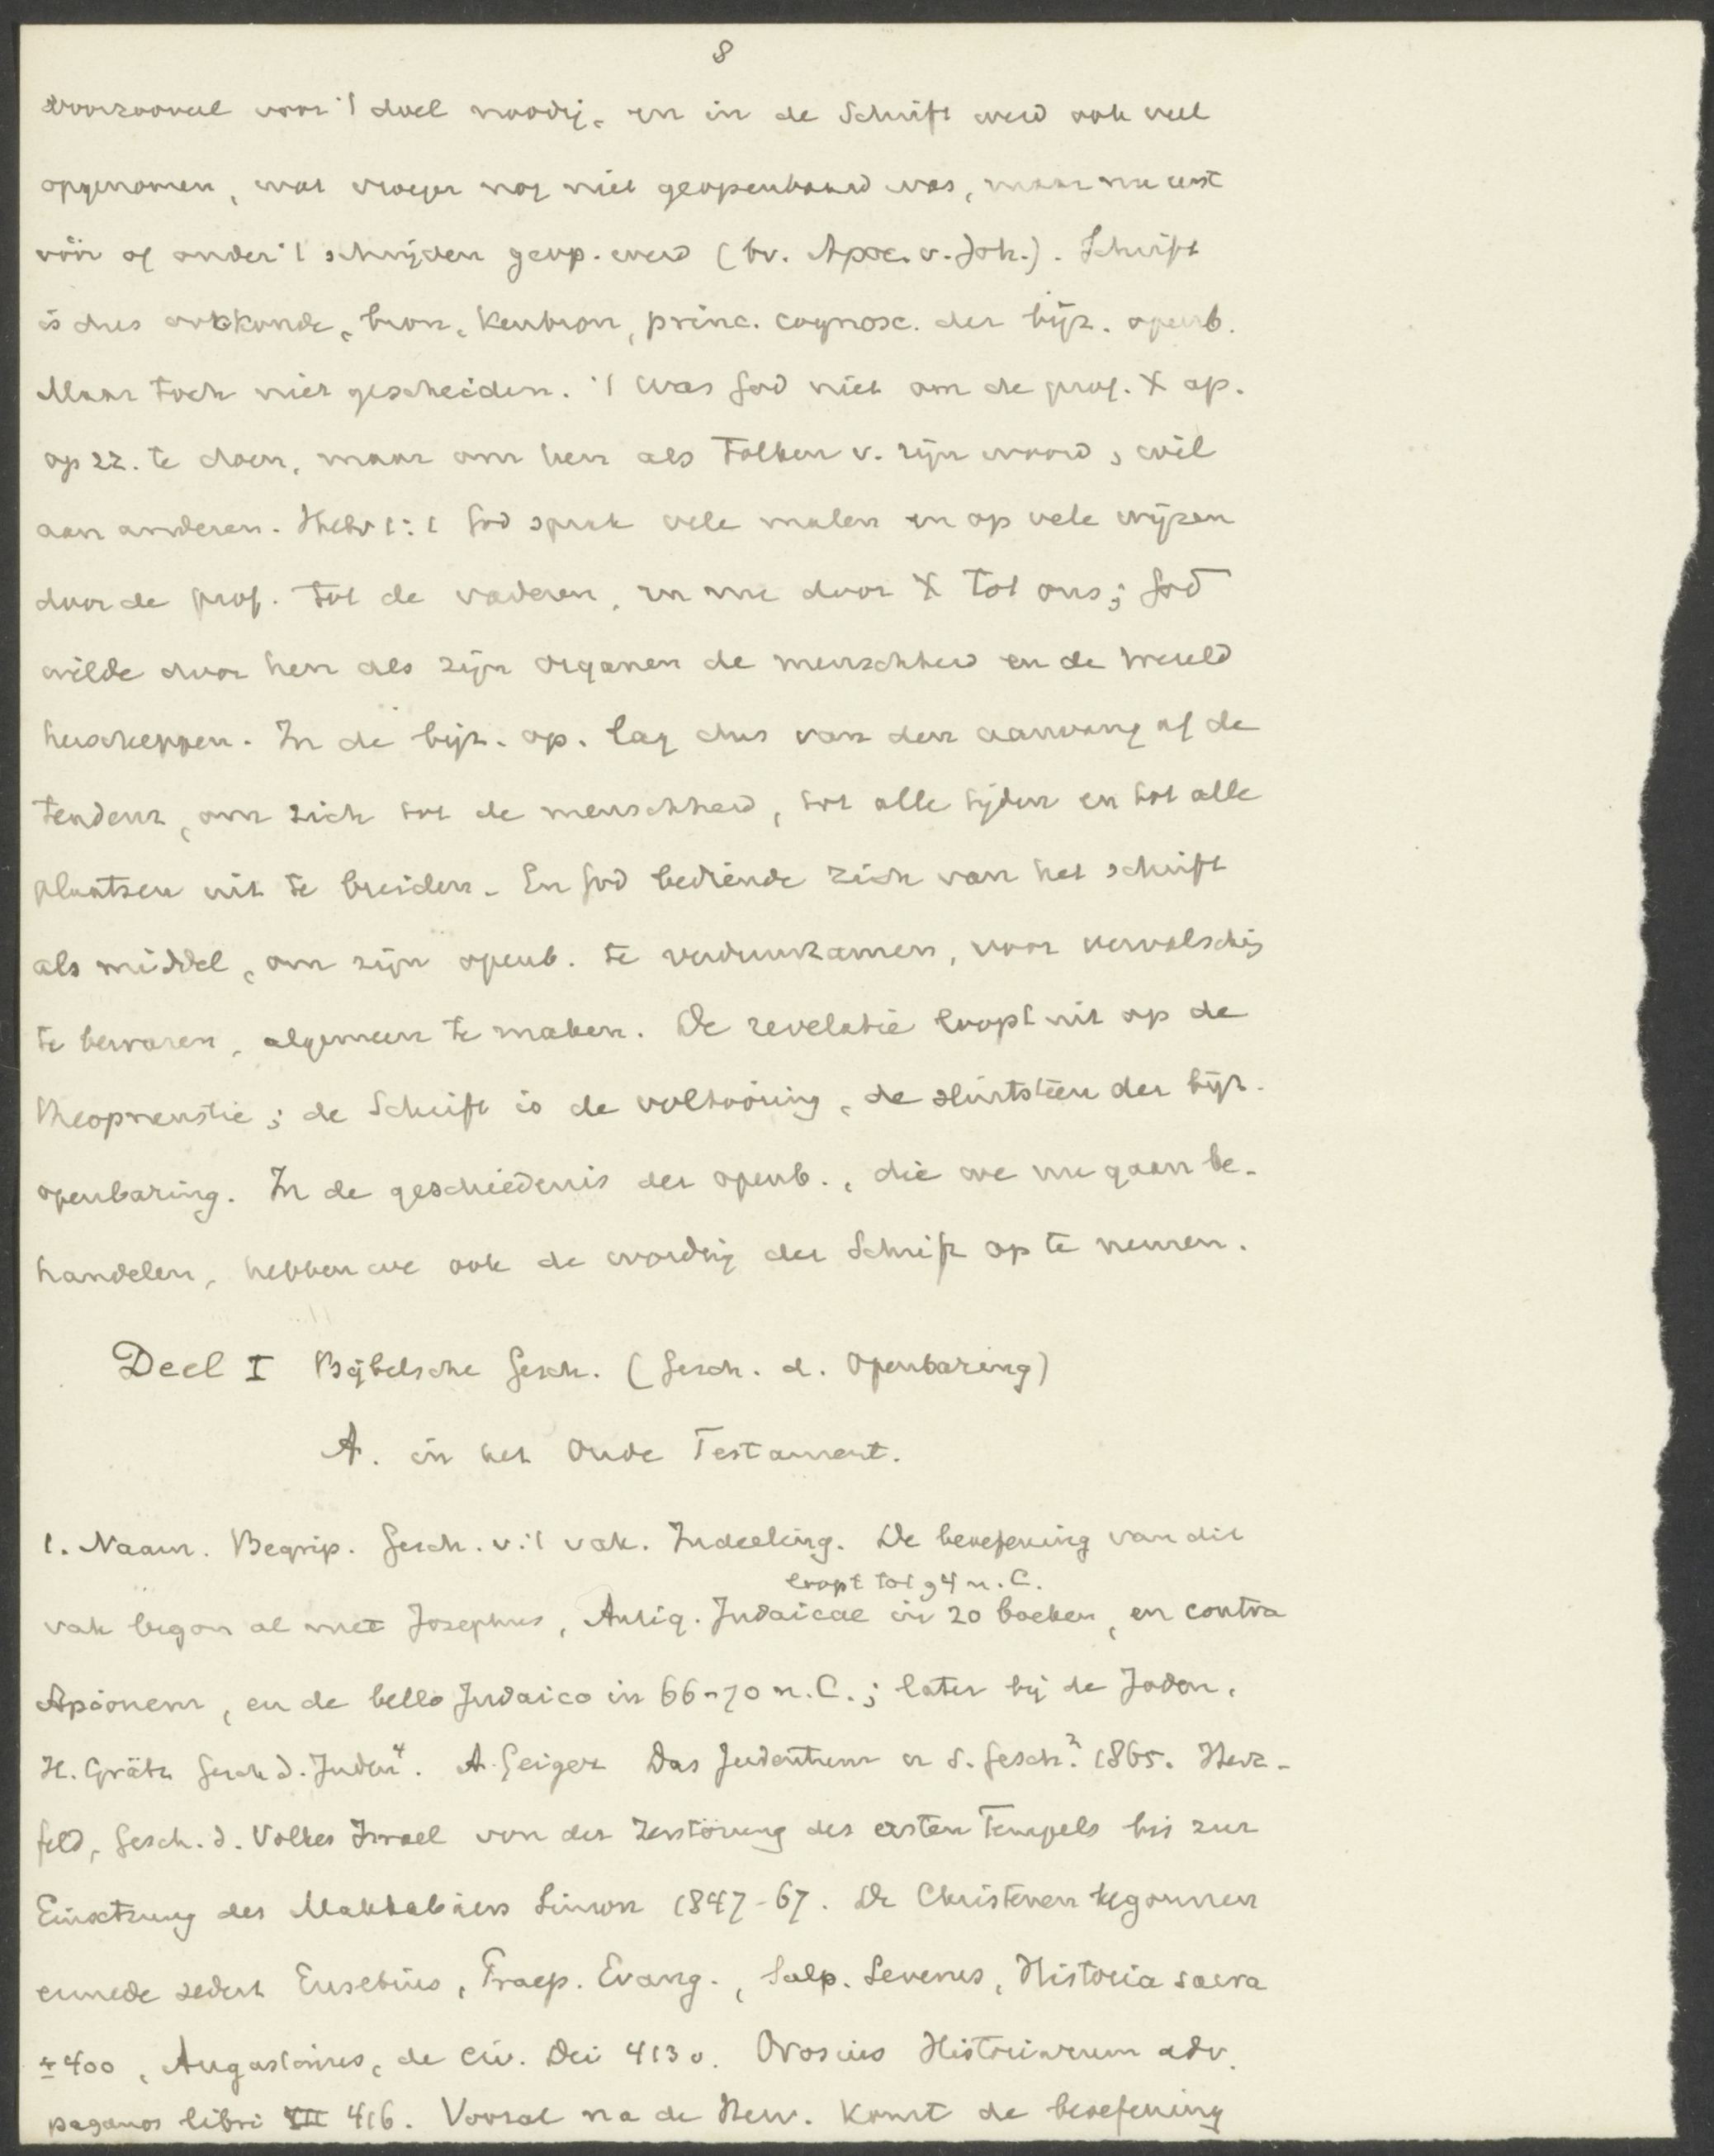 8
voorzooveel voor 't doel noodig, en in de Schrift werd ook veel
opgenomen, wat vroeger nog niet geopenbaard was, maar nu eerst
vóór of onder 't schrijven geop. werd (bv. Apoc. v. Joh.). Schrift
is dus oorkonde, bron, kenbron, princ. cognosc. der bijz. openb.
Maar toch niet gescheiden. 't Was God niet om de prof. & ap.
op zz. te doen, maar om hen als tolken v. zijn woord & wil
aan anderen. Hebr 1:1 God sprak vele malen en op vele wijzen
door de prof. tot de vaderen, en nu door X tot ons; God
wilde door hen als zijn organen de menschheid en de wereld
herscheppen. In de bijz. op. lag dus van den aanvang af de
tendenz, om zich tot de menschheid, tot alle tijden en tot alle
plaatsen uit te breiden. En God bediende zich van het schrift
als middel, om zijn openb. te verduurzamen, voor vervalschig
te bewaren, algemeen te maken. De revelatie loopt uit op de
theopneustie; de Schrift is de voltooiing, de sluitsteen der bijz.
openbaring. In de geschiedenis der openb., die we nu gaan be-
handelen, hebben we ook de wording der Schrift op te nemen.
Deel I Bijbelsche Gesch. (Gesch. d. Openbaring)
A. in het Oude Testament.
1. Naam. Begrip. Gesch. v. 't vak. Indeeling. De beoefening van dit
loopt tot 94 n. C.
vak begon al met Josephus, Antiq. Judaicae in 20 boeken, en contra
Apionem, en de bello Judaico in 66-70 n. C.; later bij de Joden,
H. Grätz Gesch d. Juden⁴. A. Geiger Das Judentum u s. Gesch.² 1865. Herz-
feld, Gesch. d. Volkes Israel von der Zerstörung des ersten Tempels bis zur
Einsetzung des Makkabäers Simon 1847-67. De Christenen begonnen
ermede sedert Eusebius, Praep. Evang., Sulp. Severus, Historia sacra
± 400, Augustinus, de Civ. Dei 413 v. Orosius Historiarum adv.
paganos libri VII 416. Vooral na de Herv. komt de beoefening